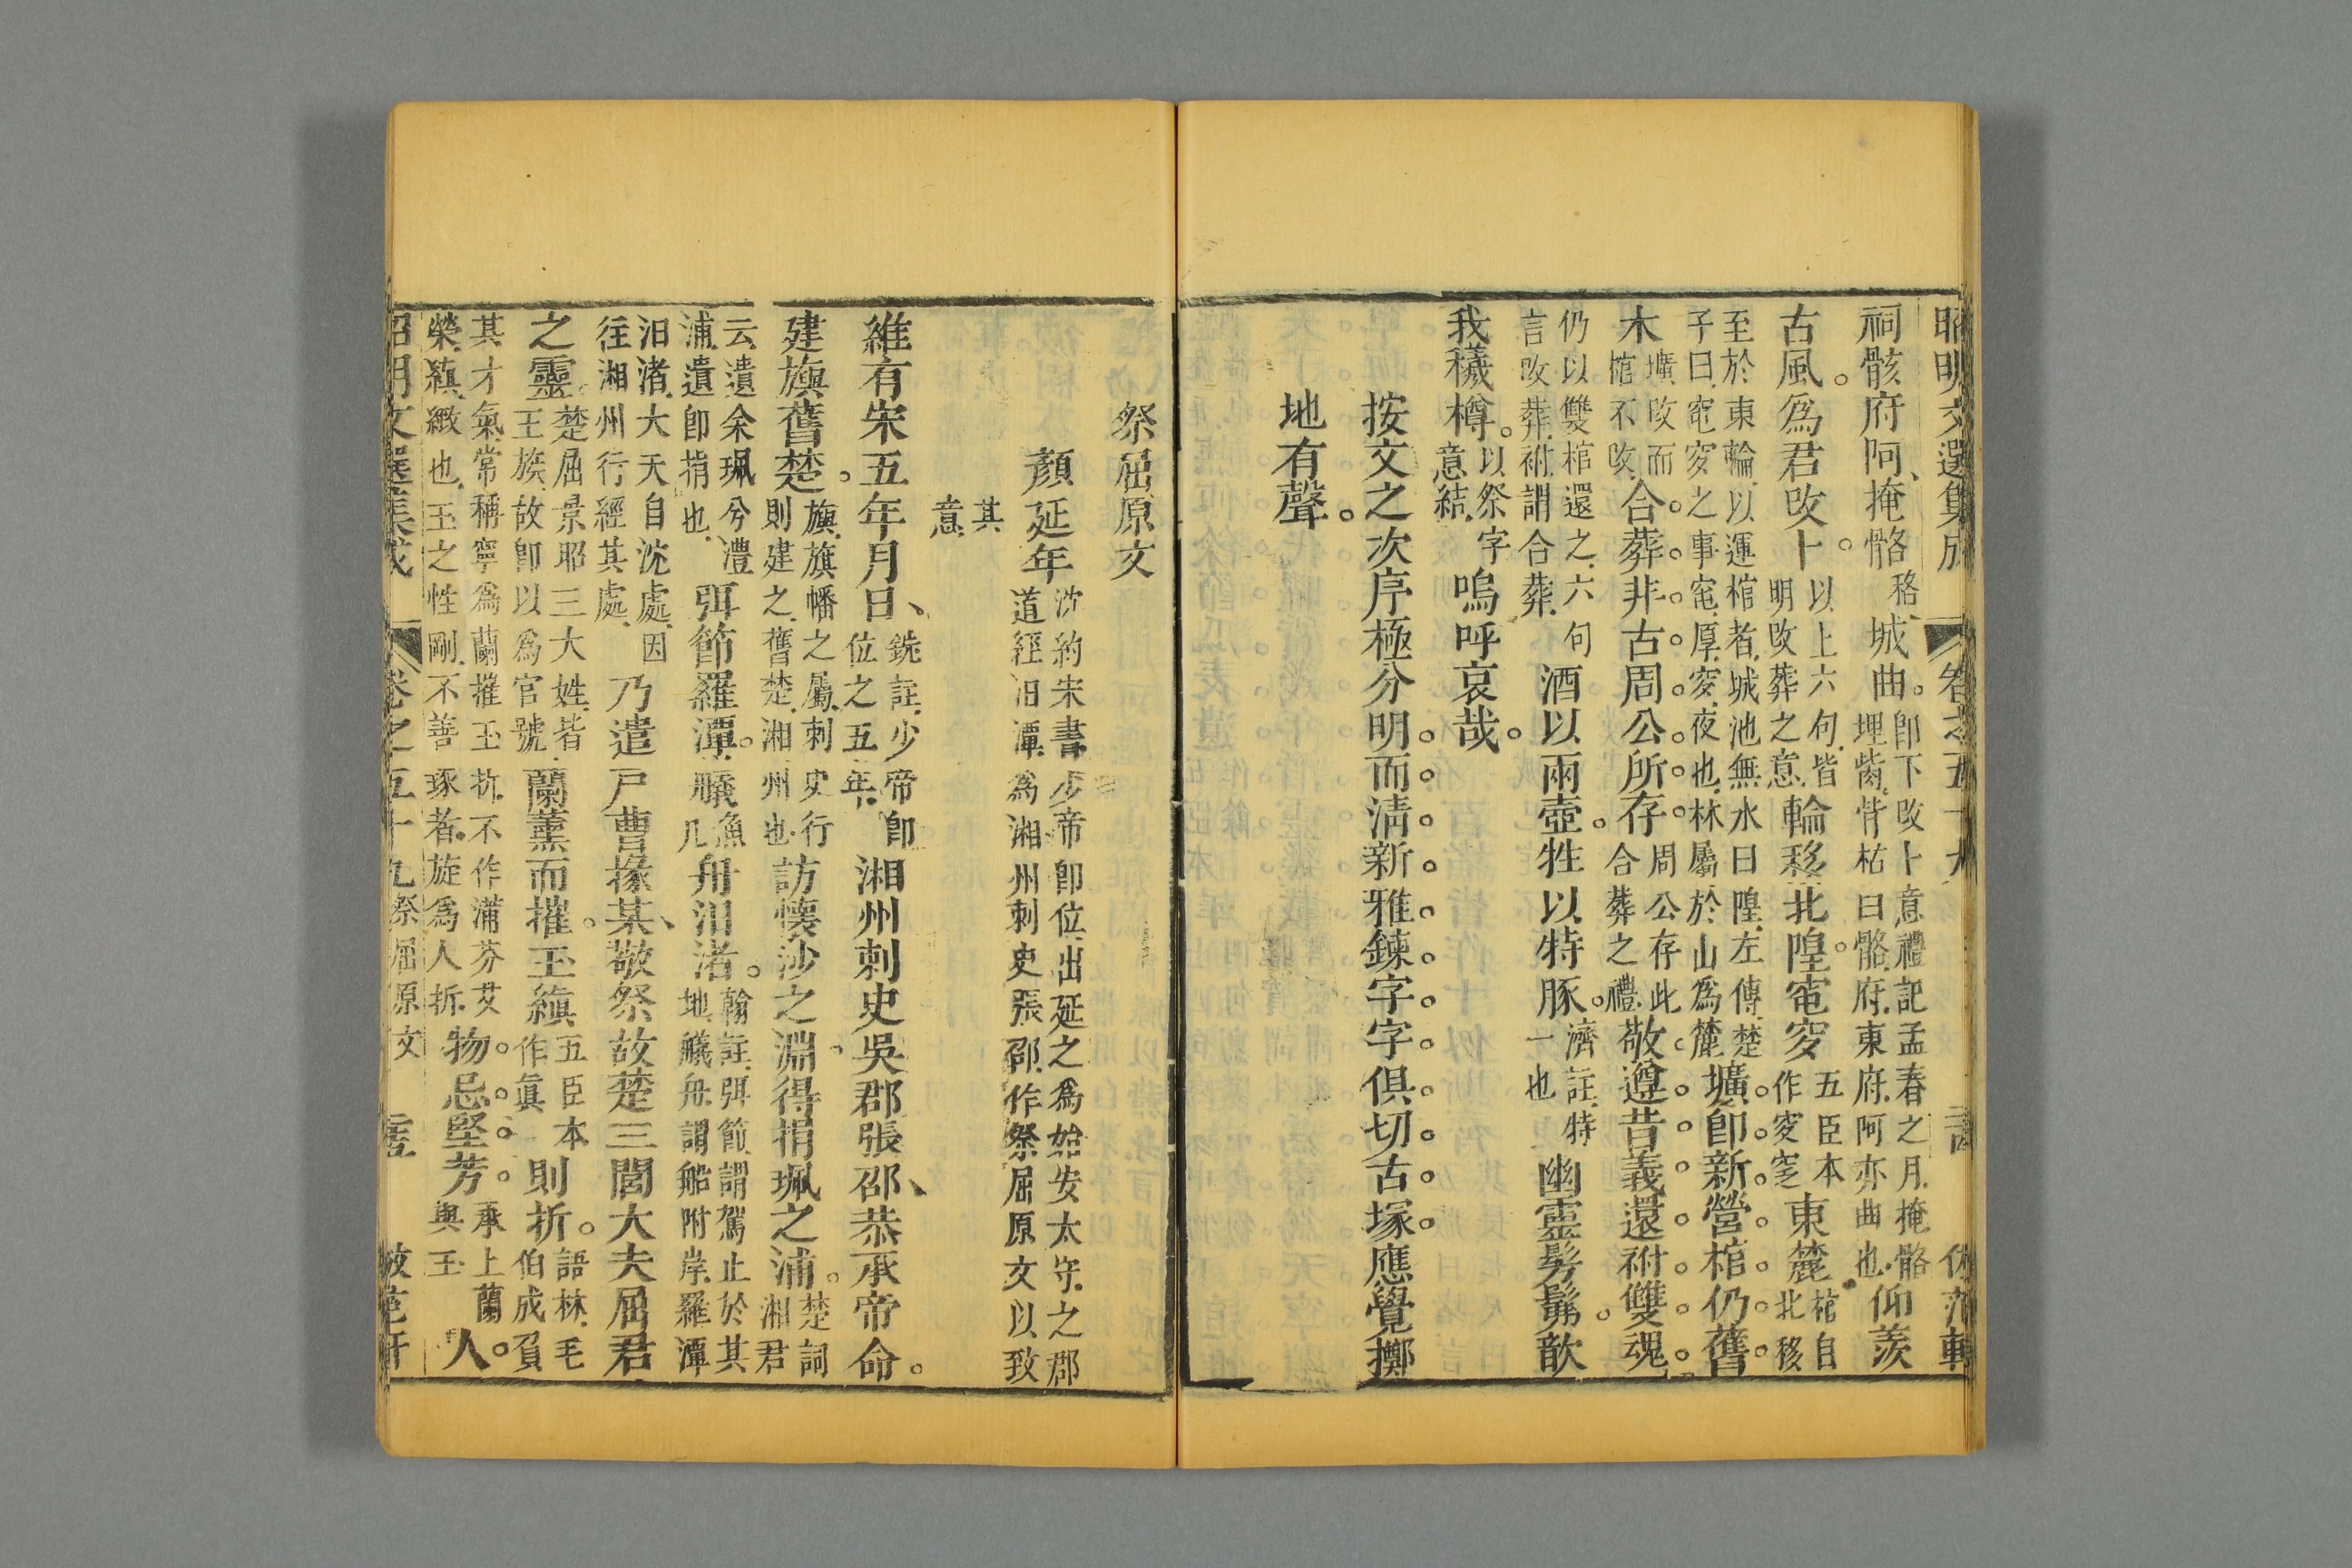 昭明文選集成 卷之五十九
祠骸府阿、掩骼格城曲。卽下改卜意禮記孟春之月掩骼埋胔骨枯曰骼府東府阿亦曲也仰羨
古風。爲君改卜。以上六句皆明改葬之意輪移北隍。窀穸五臣本作穸窆東麓棺自北移
至於東輪以運棺者城池無水曰隍左傳楚子曰窀穸之事窀厚穸夜也林屬於山爲麓壙卽新營棺仍舊
木壙改而棺不改合葬非古周公所存周公存此合葬之禮敬遵昔義還祔雙魂
仍以雙棺還之六句言改葬祔謂合葬酒以兩壺。牲以特豚。濟註特一也幽靈髣髴。歆
我犧樽。以祭字意結嗚呼哀哉。
按文之次序極分明。而淸新雅鍊字字俱切古塚應覺擲
地有聲。
祭屈原文
顏延年沈約宋書少帝卽位出延之爲始安太守之郡道經汨潭爲湘州刺史張邵作祭屈原文以致
其意
維有宋五年月日、銑註少帝卽位之五年湘州刺史吳郡張邵、恭承帝命。
建旟舊楚。旟旗幡之屬刺史行則建之舊楚湘州也訪懷沙之淵、得捐珮之浦。楚詞湘君
云遺余珮兮澧浦遺卽捐也弭節羅潭。艤魚几舟汨渚。翰註弭節謂駕止於其地艤舟謂船附岸羅潭
汨渚大夫自沈處因往湘州行經其處乃遣戶曹掾某、敬祭故楚三閭大夫屈君
之靈。楚屈景昭三大姓皆王族故卽以爲官號蘭薰而摧。玉縝五臣本作眞則折。語林毛伯成負
其才氣常稱寧爲蘭摧玉折不作蒲芬艾榮縝緻也玉之性剛不善琢者旋爲人折物忌堅芳。承上蘭與玉人
昭明文選集成 卷之五十九祭屈原文